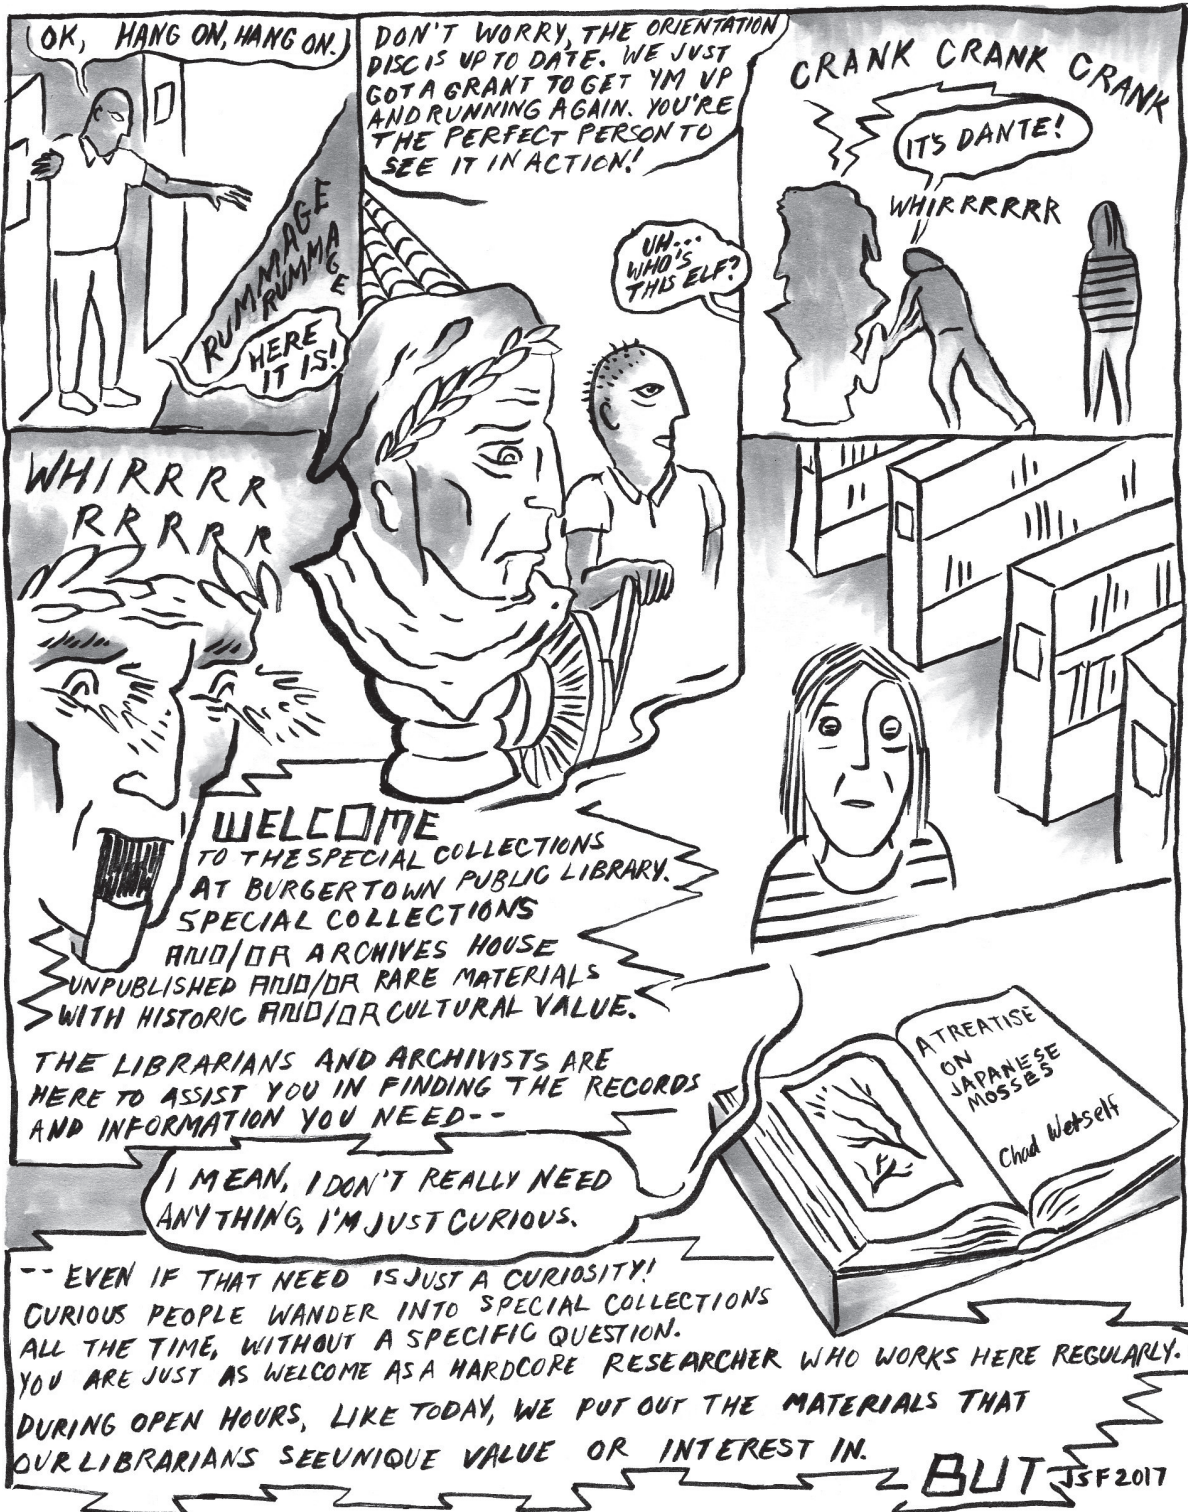 OK, HANG ON, HANG ON.
RUMMAGE
RUMMAGE
HERE
IT IS!
DON'T WORRY, THE ORIENTATION
DISC IS UP TO DATE. WE JUST
GOT A GRANT TO GET YM UP
AND RUNNING AGAIN. YOU'RE
THE PERFECT PERSON TO
SEE IT IN ACTION!
UH...
WHO'S
THIS ELF?
CRANK CRANK CRANK
IT'S DANTE!
WHIRRRRRR
WHIRRRR
RRRRR
WELCOME
TO THE SPECIAL COLLECTIONS
AT BURGERTOWN PUBLIC LIBRARY.
SPECIAL COLLECTIONS
AND/OR ARCHIVES HOUSE
UNPUBLISHED AND/OR RARE MATERIALS
WITH HISTORIC AND/OR CULTURAL VALUE.
THE LIBRARIANS AND ARCHIVISTS ARE
HERE TO ASSIST YOU IN FINDING THE RECORDS
AND INFORMATION YOU NEED--
I MEAN, I DON'T REALLY NEED
ANYTHING, I'M JUST CURIOUS.
A TREATISE
ON
JAPANESE
MOSSES
Chad Wetself
-- EVEN IF THAT NEED IS JUST A CURIOSITY!
CURIOUS PEOPLE WANDER INTO SPECIAL COLLECTIONS
ALL THE TIME, WITHOUT A SPECIFIC QUESTION.
YOU ARE JUST AS WELCOME AS A HARDCORE RESEARCHER WHO WORKS HERE REGULARLY.
DURING OPEN HOURS, LIKE TODAY, WE PUT OUT THE MATERIALS THAT
OUR LIBRARIANS SEE UNIQUE VALUE OR INTEREST IN.
BUT
JSF 2017